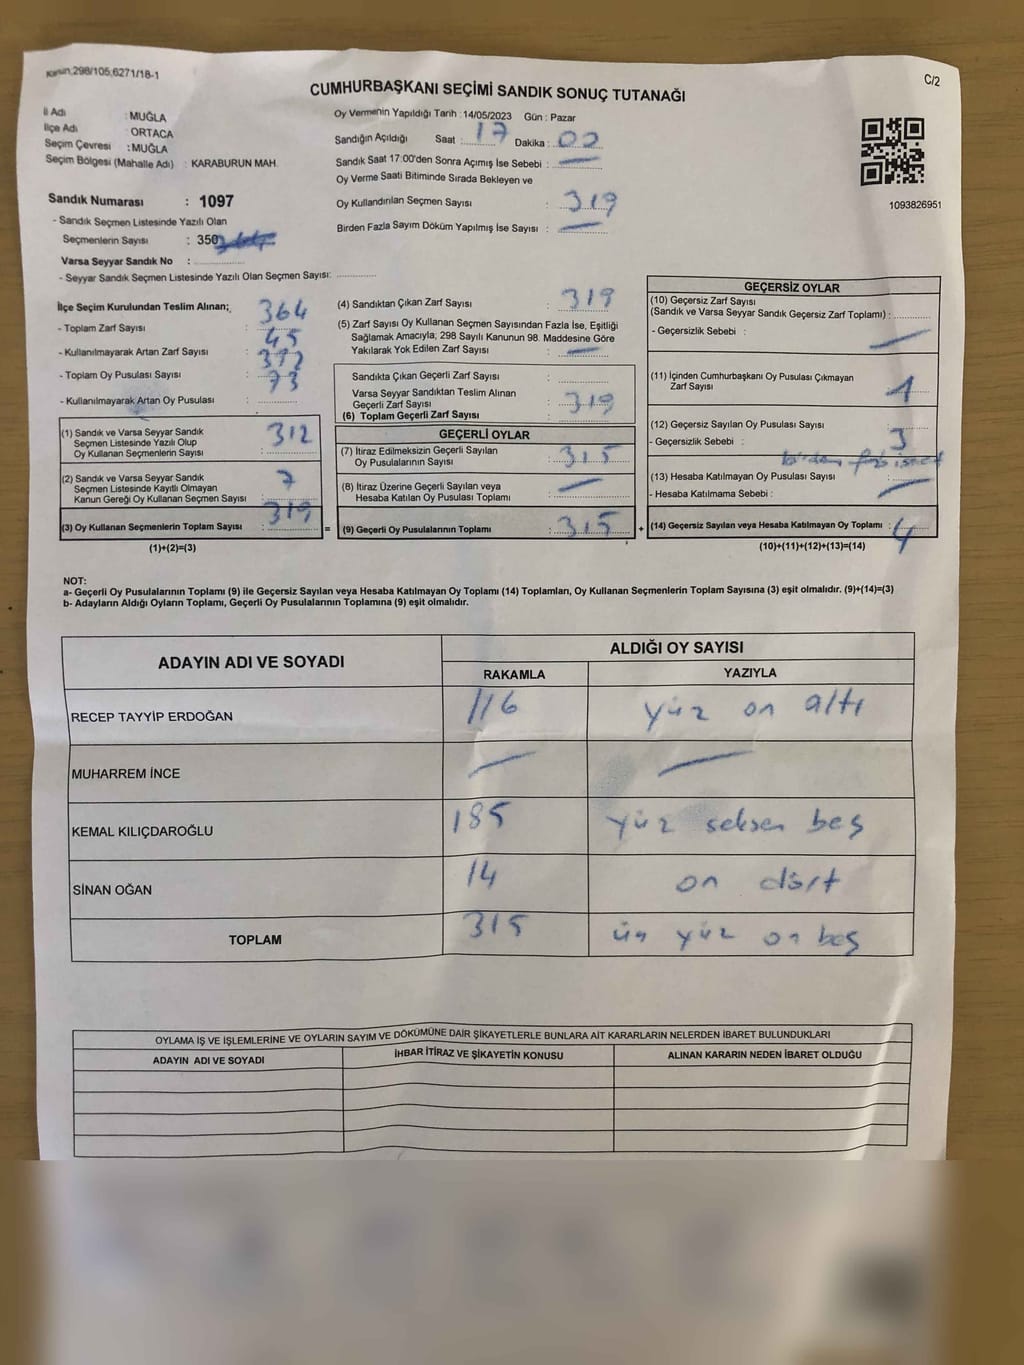 Kanun:298/105,6271/18-1
C/2
CUMHURBAŞKANI SEÇİMİ SANDIK SONUÇ TUTANAĞI
İl Adı : MUĞLA
İlçe Adı : ORTACA
Seçim Çevresi : MUĞLA
Seçim Bölgesi (Mahalle Adı) : KARABURUN MAH.
Oy Vermenin Yapıldığı Tarih :14/05/2023 Gün : Pazar
Sandığın Açıldığı Saat : 17 Dakika : 00
Sandık Saat 17:00'den Sonra Açımış İse Sebebi : —
Oy Verme Saati Bitiminde Sırada Bekleyen ve
Oy Kullandırılan Seçmen Sayısı : 319
Birden Fazla Sayım Döküm Yapılmış İse Sayısı : —
1093826951
Sandık Numarası : 1097
- Sandık Seçmen Listesinde Yazılı Olan
Seçmenlerin Sayısı : 350
Varsa Seyyar Sandık No :
- Seyyar Sandık Seçmen Listesinde Yazılı Olan Seçmen Sayısı:
İlçe Seçim Kurulundan Teslim Alınan;
- Toplam Zarf Sayısı : 364
- Kullanılmayarak Artan Zarf Sayısı : 45
- Toplam Oy Pusulası Sayısı :
- Kullanılmayarak Artan Oy Pusulası : 73
(1) Sandık ve Varsa Seyyar Sandık
Seçmen Listesinde Yazılı Olup
Oy Kullanan Seçmenlerin Sayısı : 312
(2) Sandık ve Varsa Seyyar Sandık
Seçmen Listesinde Kayıtlı Olmayan
Kanun Gereği Oy Kullanan Seçmen Sayısı : 7
(3) Oy Kullanan Seçmenlerin Toplam Sayısı : 319
(1)+(2)=(3)
(4) Sandıktan Çıkan Zarf Sayısı : 319
(5) Zarf Sayısı Oy Kullanan Seçmen Sayısından Fazla İse, Eşitliği
Sağlamak Amacıyla, 298 Sayılı Kanunun 98. Maddesine Göre
Yakılarak Yok Edilen Zarf Sayısı : —
Sandıkta Çıkan Geçerli Zarf Sayısı :
Varsa Seyyar Sandıktan Teslim Alınan
Geçerli Zarf Sayısı :
(6) Toplam Geçerli Zarf Sayısı : 319
GEÇERLİ OYLAR
(7) İtiraz Edilmeksizin Geçerli Sayılan
Oy Pusulalarının Sayısı : 315
(8) İtiraz Üzerine Geçerli Sayılan veya
Hesaba Katılan Oy Pusulası Toplamı : —
= (9) Geçerli Oy Pusulalarının Toplamı : 315 +
GEÇERSİZ OYLAR
(10) Geçersiz Zarf Sayısı
(Sandık ve Varsa Seyyar Sandık Geçersiz Zarf Toplamı) :
- Geçersizlik Sebebi : —
(11) İçinden Cumhurbaşkanı Oy Pusulası Çıkmayan
Zarf Sayısı : 1
(12) Geçersiz Sayılan Oy Pusulası Sayısı : 3
- Geçersizlik Sebebi : birden
(13) Hesaba Katılmayan Oy Pusulası Sayısı :
- Hesaba Katılmama Sebebi : —
(14) Geçersiz Sayılan veya Hesaba Katılmayan Oy Toplamı : 4
(10)+(11)+(12)+(13)=(14)
NOT:
a- Geçerli Oy Pusulalarının Toplamı (9) ile Geçersiz Sayılan veya Hesaba Katılmayan Oy Toplamı (14) Toplamları, Oy Kullanan Seçmenlerin Toplam Sayısına (3) eşit olmalıdır. (9)+(14)=(3)
b- Adayların Aldığı Oyların Toplamı, Geçerli Oy Pusulalarının Toplamına (9) eşit olmalıdır.
ADAYIN ADI VE SOYADI
ALDIĞI OY SAYISI
RAKAMLA YAZIYLA
RECEP TAYYİP ERDOĞAN 116 yüz on altı
MUHARREM İNCE — —
KEMAL KILIÇDAROĞLU 185 yüz seksen beş
SİNAN OĞAN 14 on dört
TOPLAM 315 üç yüz on beş
OYLAMA İŞ VE İŞLEMLERİNE VE OYLARIN SAYIM VE DÖKÜMÜNE DAİR ŞİKAYETLERLE BUNLARA AİT KARARLARIN NELERDEN İBARET BULUNDUKLARI
ADAYIN ADI VE SOYADI İHBAR İTİRAZ VE ŞİKAYETİN KONUSU ALINAN KARARIN NEDEN İBARET OLDUĞU